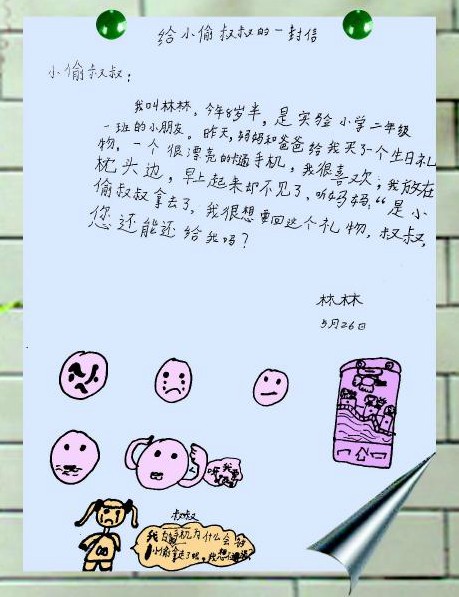 给小偷叔叔的一封信
小偷叔叔：
我叫林林，今年8岁半，是实验小学二年级
一班的小朋友。昨天，妈妈和爸爸给我买了个生日礼
物，一个很漂亮的卡通手机，我很喜欢，我放在
枕头边，早上起来却不见了，听妈妈："是小
偷叔叔拿去了，我很想要回这个礼物，叔叔，
您还能还给我吗？
林林
5月26日
叔叔
我 手机为什么会
小偷拿走了呢，我想